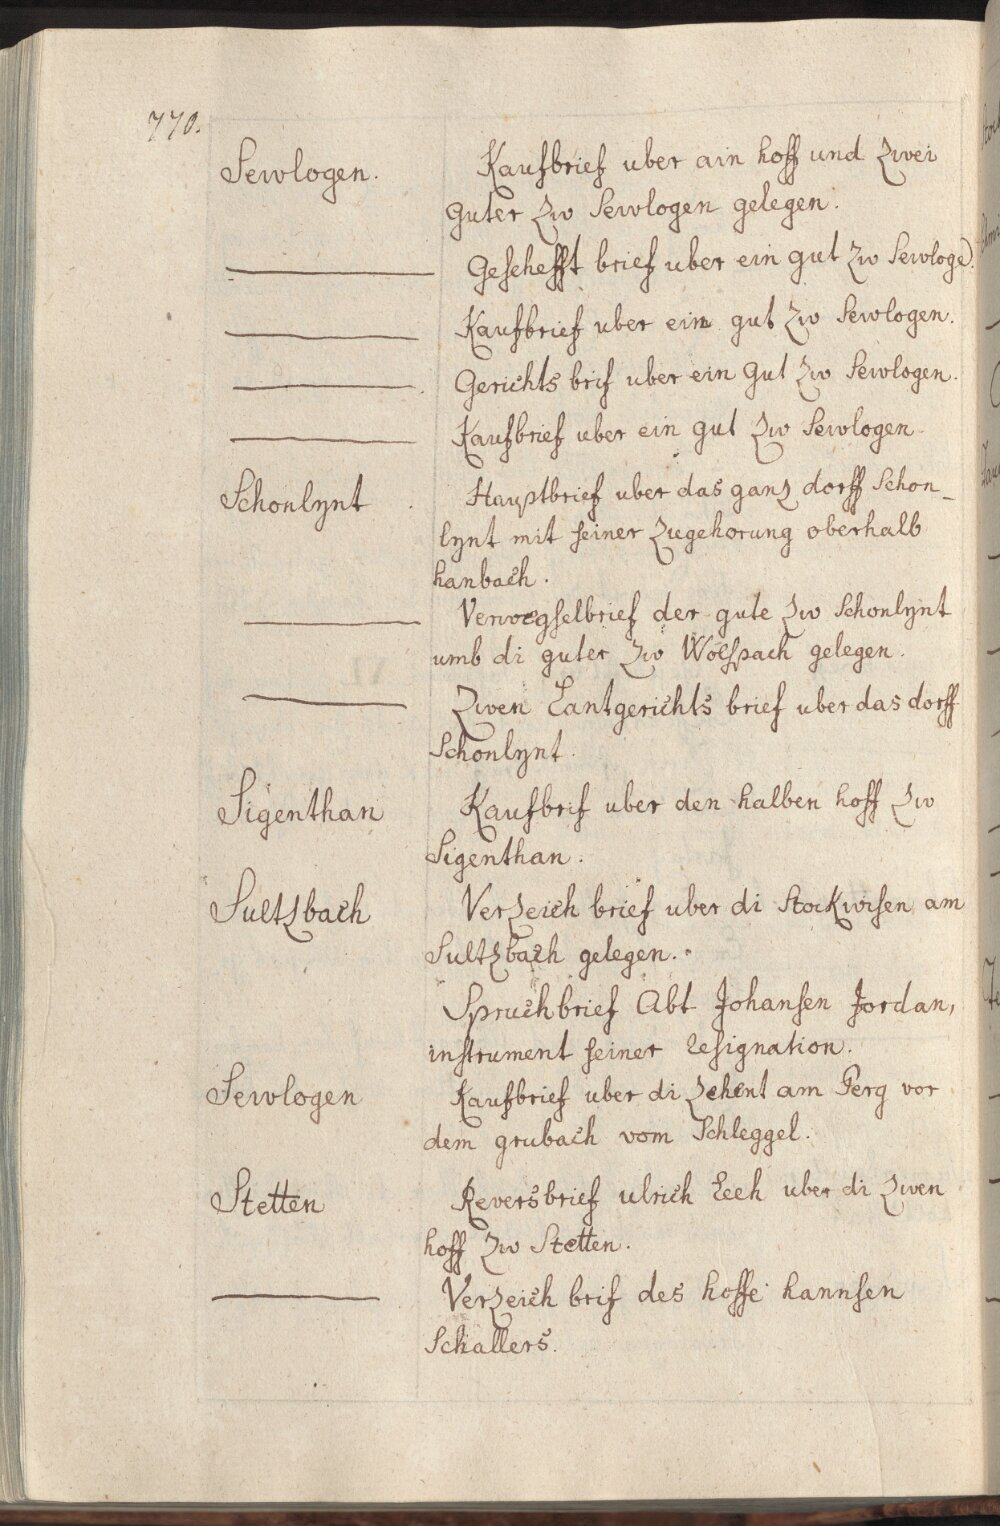 770.
Sewlogen. Kaufbrief uber ain hoff und zwei
guter zw Sewlogen gelegen.
Geschefft brief uber ein gut zw Sewloge.
Kaufbrief uber ein gut zw Sewlogen.
Gerichts brif uber ein gut zw Sewlogen.
Kaufbrief uber ein gut zw Sewlogen
Schonlynt Hauptbrief uber das ganz dorff Schon-
lynt mit seiner zugehorung oberhalb
hanbach.
Verwegselbrief der gute zw Schonlynt
umb di guter zw Wolspach gelegen.
Zwen Lantgerichts brief uber das dorff
Schonlynt.
Sigenthan Kaufbrif uber den halben hoff zw
Sigenthan.
Sultzbach Verzeich brief uber di Stockwisen am
Sultzbach gelegen.
Spruchbrief Abt Johansen Jordan,
instrument seiner resignation.
Sewlogen Kaufbrief uber di zehent am Perg vor
dem grubach vom Schleggel.
Stetten Reversbrief ulrich Lech uber di zwen
hoff zw Stetten.
Verzeich brif des hoffe hannsen
Schallers.